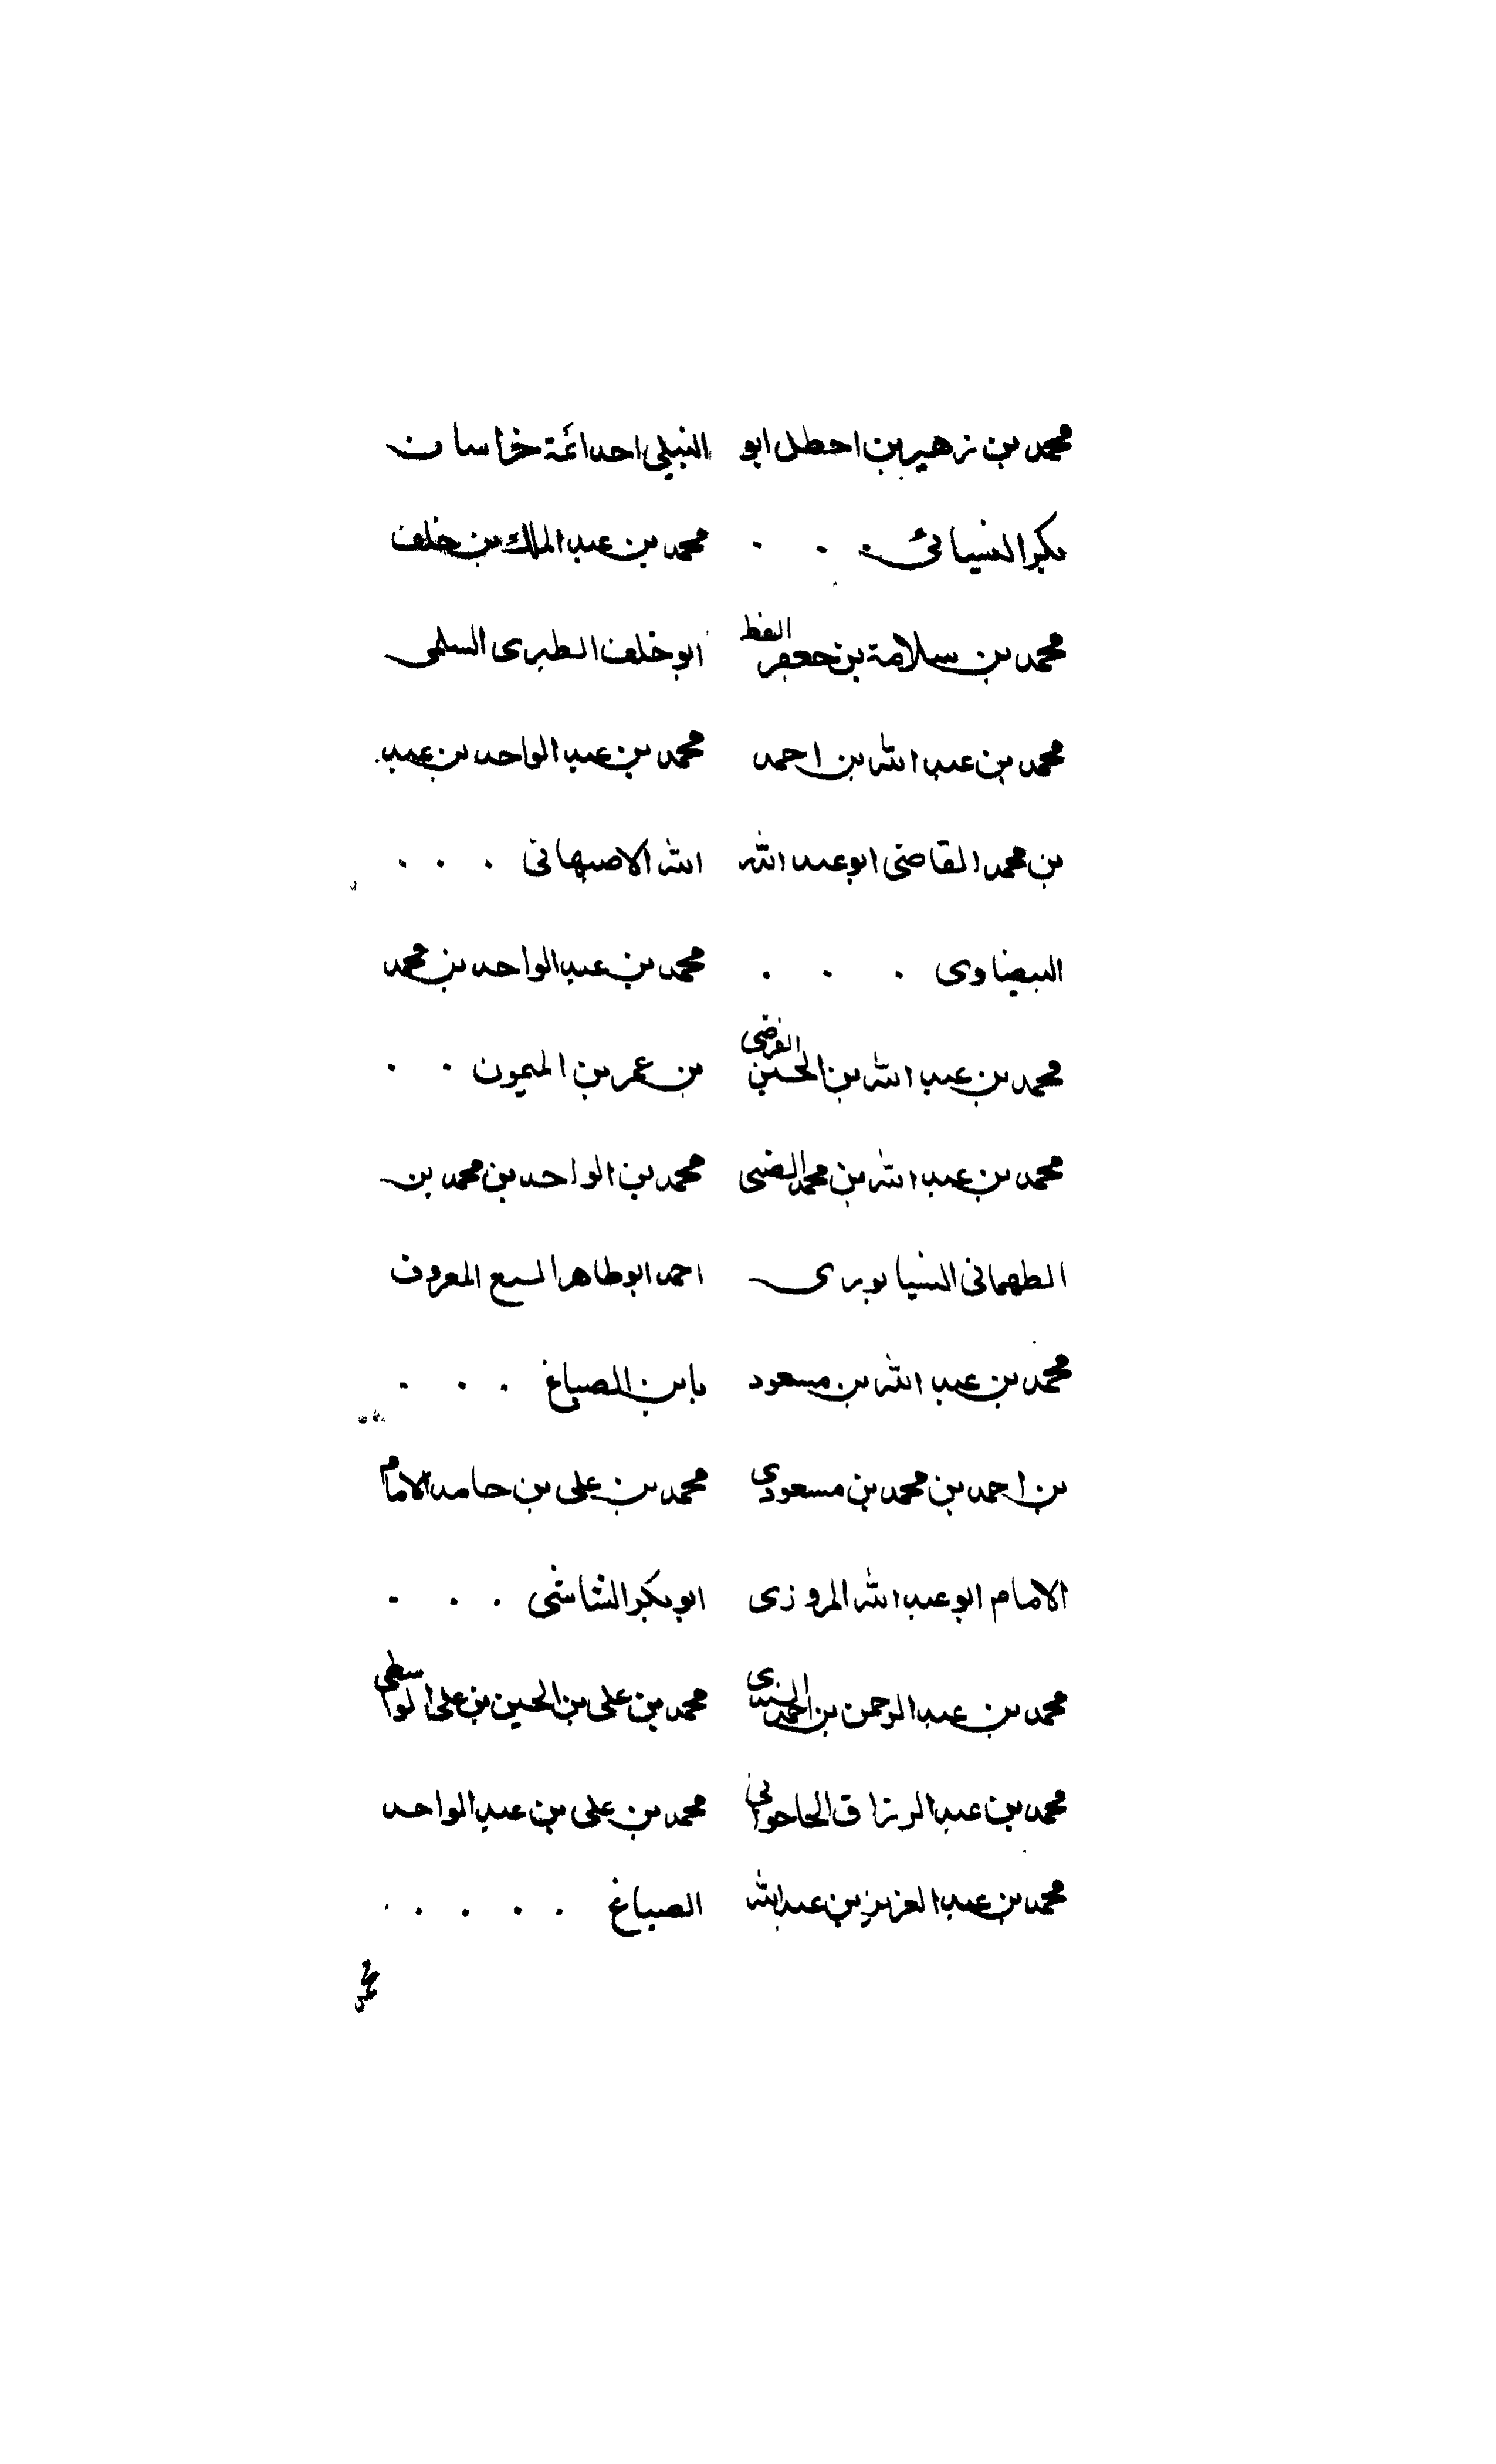 محمد بن زهير بن احطل ابو
بكر النسيائى . . .
محمد بن سلامة بن جعفر
محمد بن عبد الله بن احمد
بن محمد القاضى ابو عبد الله
البيضاوى . . .
محمد بن عبد الله بن الحسين الفرضى
محمد بن عبد الله بن محمد الضبى
الطهمانى النسيابورى
محمد بن عبد الله بن مسعود
بن احمد بن محمد بن مسعودى
الامام ابو عبد الله المروزى
محمد بن عبد الرحمن بن احمد
محمد بن عبد الرزاق
محمد بن عبد العزيز بن عبد الله
النيلى احد ائمة خراسان
محمد بن عبد الملك بن خلف
ابو خلف الطبرى السلمى
محمد بن عبد الواحد بن عبيد
الله الاصبهانى . . .
محمد بن عبد الواحد بن محمد
بن عمر بن الميمون . .
محمد بن الواحد بن محمد بن
احمد ابو طاهر البيع المعروف
بابن الصباغ . . .
محمد بن على بن حامد الامام
ابو بكر الشاشى . . .
محمد بن على بن الحسين بن على الواسطى
محمد بن على بن عبد الواحد
الصباغ . . . . .
محمد